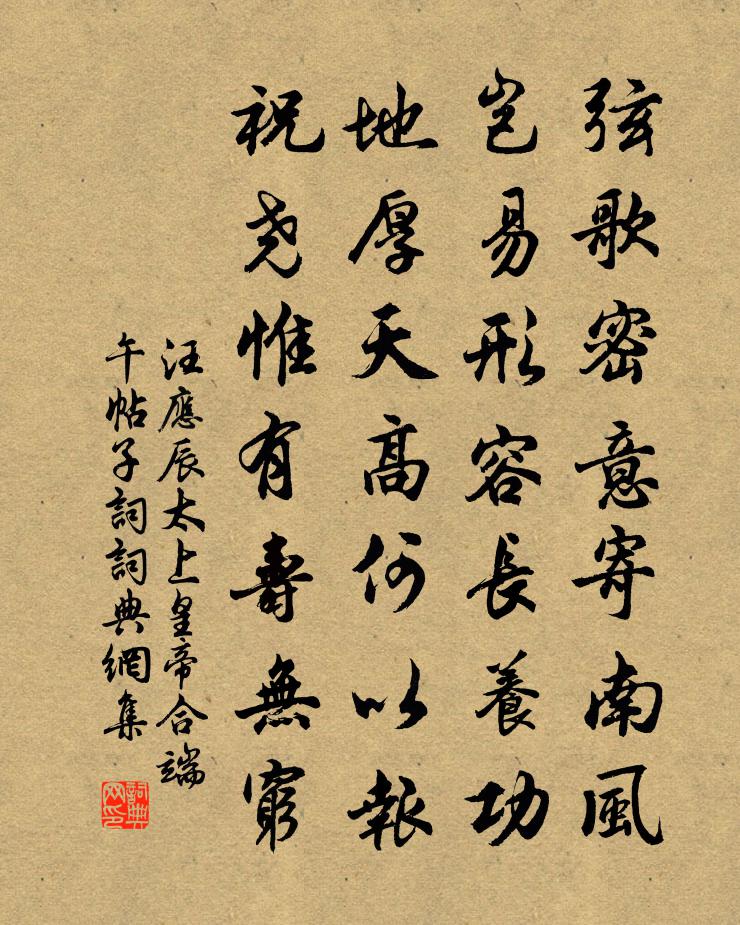 弦歌密意寄南風
豈易形容長養功
地厚天高何以報
祝尧惟有壽無窮
汪應辰太上皇帝合端
午帖子詞詞典網集
詞典
网印